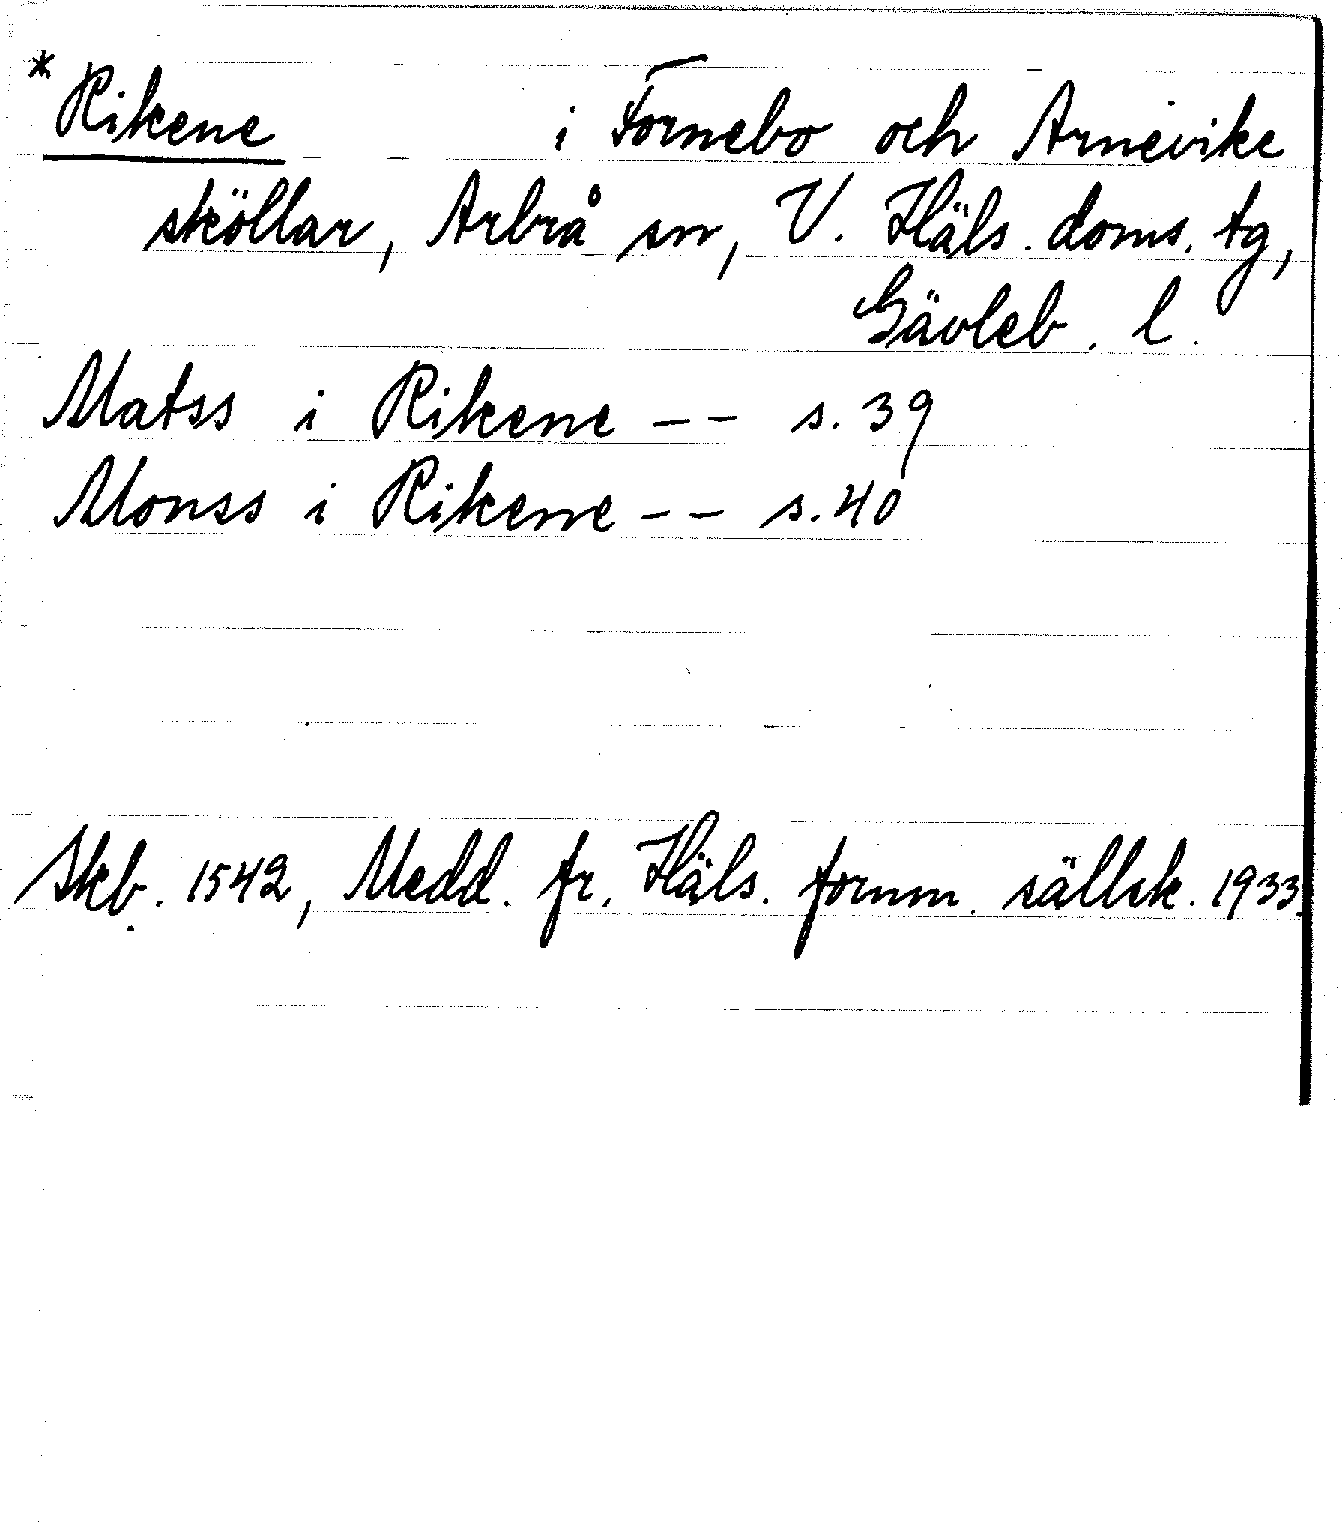 * Rikene i Fornebo och Arnevike
sköllar, Arbrå sn, V. Häls. doms. tg,
Gävleb. l.
Matss i Rikene -- s. 39
Monss i Rikene -- s. 40
Skb. 1542, Medd. fr. Häls. fornm. sällsk. 1933.